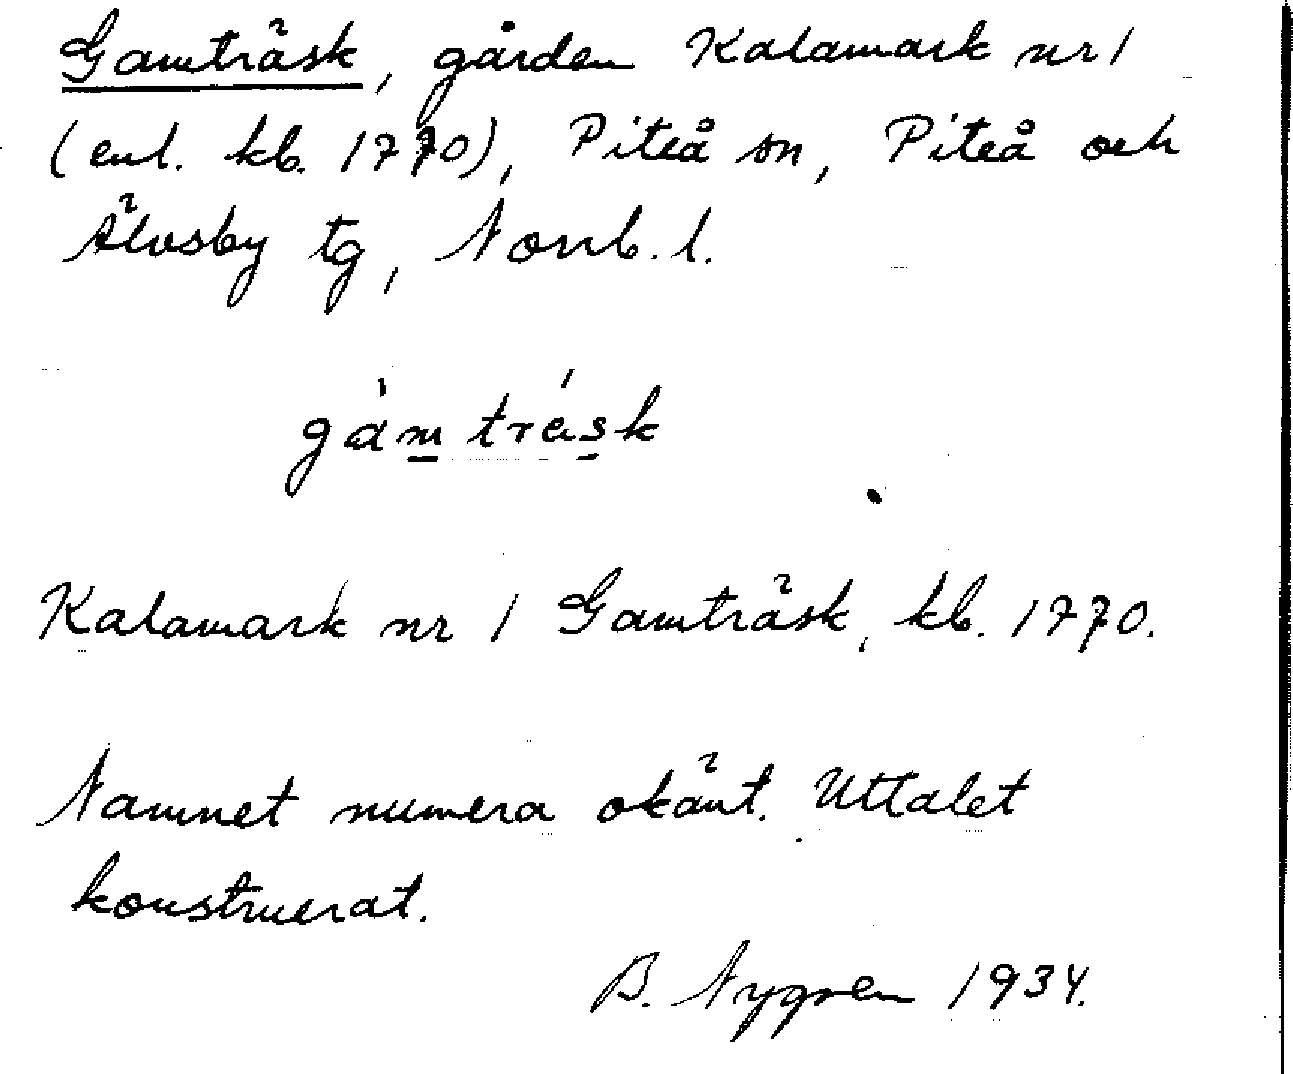 Gamträsk, gården Kalamark nr 1
(enl. kb. 1770), Piteå sn, Piteå och
Älvsby tg, Norrb. l.
gàmtrásk
Kalamark nr 1 Gamträsk, kb. 1770.
Namnet numera okänt. Uttalet
konstruerat.
B. Nygren 1934.